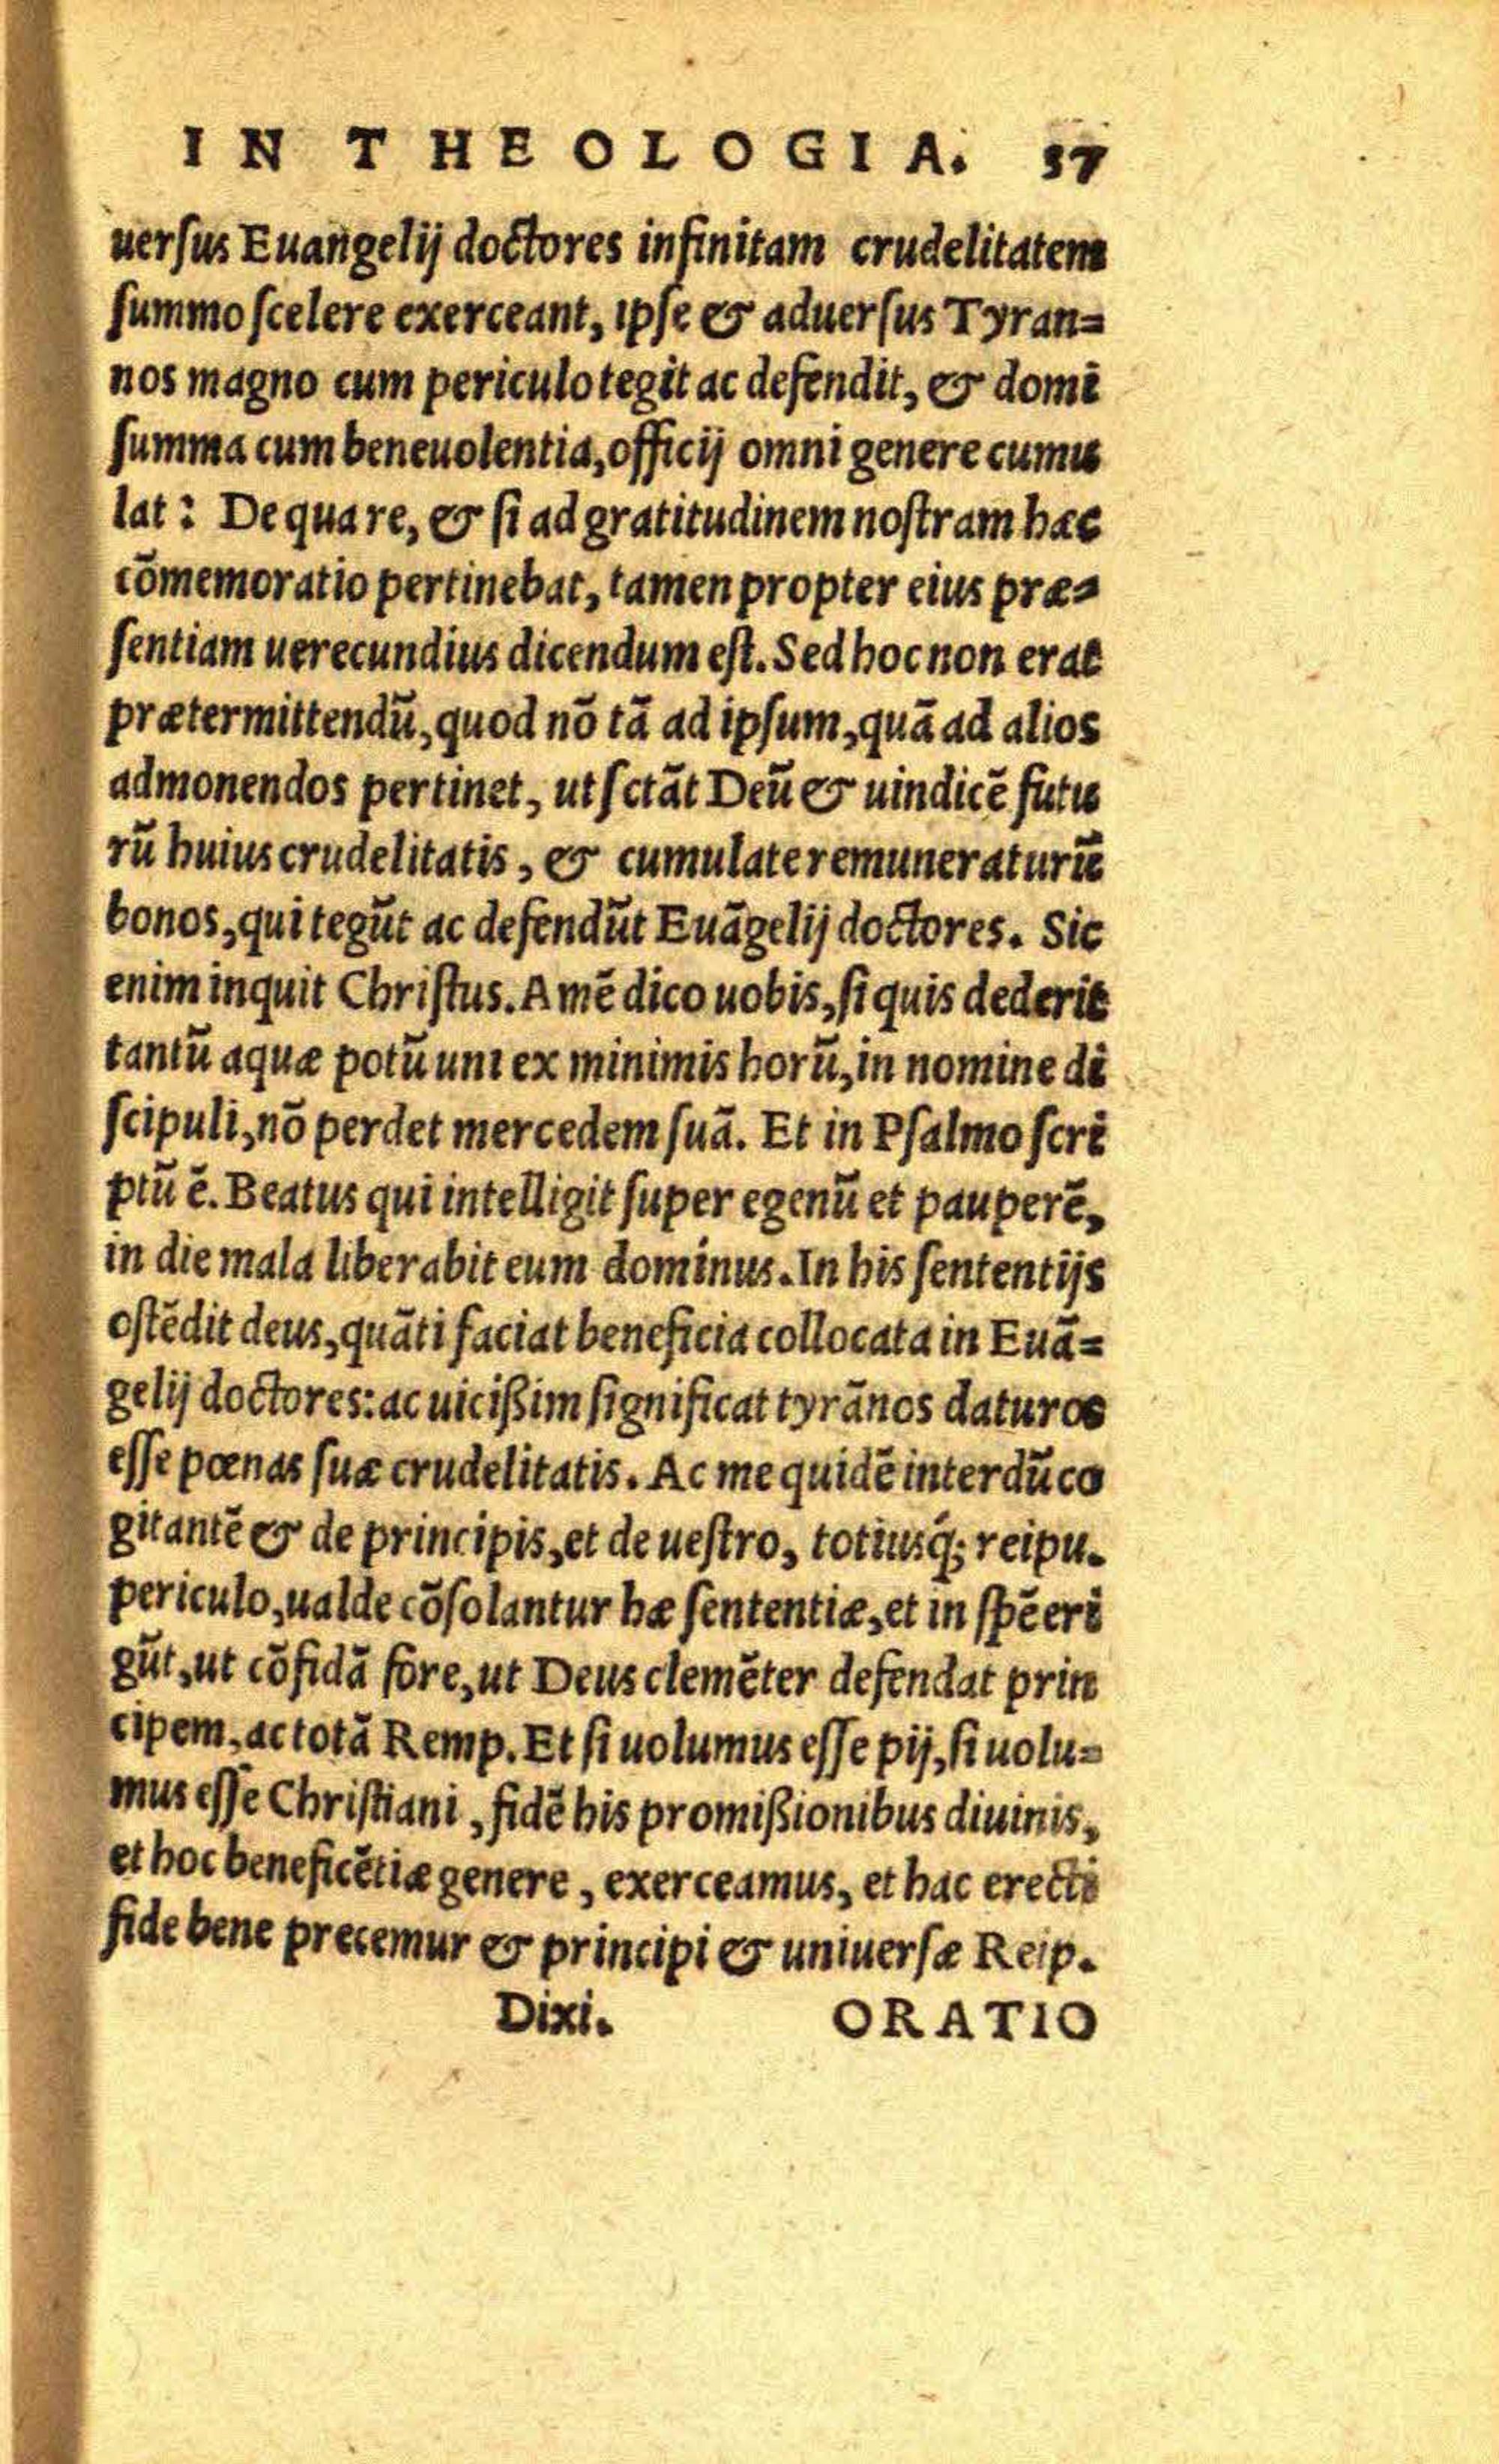 IN THEOLOGIA. 37
uerſus Euangelij doctores infinitam crudelitatem
ſummo ſcelere exerceant, ipſe & aduerſus Tyran=
nos magno cum periculo tegit ac defendit, & domi
ſumma cum beneuolentia, officij omni genere cumu
lat: De qua re, & ſi ad gratitudinem noſtram hæc
cōmemoratio pertinebat, tamen propter eius præ=
ſentiam uerecundius dicendum eſt. Sed hoc non erat
prætermittendū, quod nō tā ad ipſum, quā ad alios
admonendos pertinet, ut ſciāt Deū & uindicē futu
rū huius crudelitatis, & cumulate remuneraturū
bonos, qui tegūt ac defendūt Euāgelij doctores. Sic
enim inquit Chriſtus. Amē dico uobis, ſi quis dederit
tantū aquæ potū uni ex minimis horū, in nomine di
ſcipuli, nō perdet mercedem ſuā. Et in Pſalmo ſcri
ptū ē. Beatus qui intelligit ſuper egenū et pauperē,
in die mala liberabit eum dominus. In his ſententijs
oſtēdit deus, quāti faciat beneficia collocata in Euā=
gelij doctores: ac uicißim ſignificat tyrānos daturos
eſſe pœnas ſuæ crudelitatis. Ac me quidē interdū co
gitantē & de principis, et de ueſtro, totiusq́; reipu.
periculo, ualde cōſolantur hæ ſententiæ, et in ſpē eri
gūt, ut cōfidā fore, ut Deus clemēter defendat prin
cipem, ac totā Remp. Et ſi uolumus eſſe pij, ſi uolu=
mus eſſe Chriſtiani, fidē his promißionibus diuinis,
et hoc beneficētiæ genere, exerceamus, et hac erecti
fide bene precemur & principi & uniuerſæ Reip.
Dixi. ORATIO